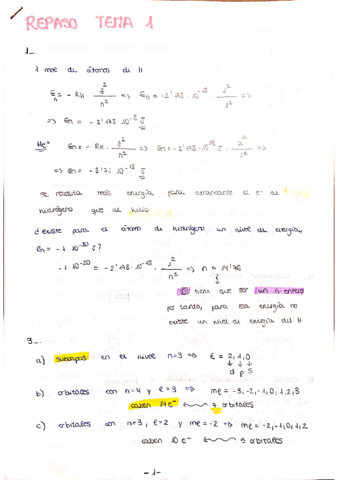 REPASO TEMA 1
1_
1 mol de átomos de H
En = - RH · z²/n² => En = -2'178 · 10⁻¹⁸ · 1²/1²
=> En = - 2'178 · 10⁻¹⁸ J
He⁺ En = - RH · z²/n² => En = -2'178 · 10⁻¹⁸ J · 2²/1²
=> En = - 8'71 · 10⁻¹⁸ J
se necesita más energía para arrancarle el e⁻ al
hidrógeno que al helio
¿Existe para el átomo de hidrógeno un nivel de energía,
En = -1 · 10⁻²⁰ J?
-1 · 10⁻²⁰ = -2'178 · 10⁻¹⁸ · 1²/n² => n = 14'76
tiene que ser un n entero
por tanto, para esa energía no
existe un nivel de energía del H
3_
a) subcapas en el nivel n=3 => ℓ = 2, 1, 0
d p s
b) orbitales con n=4 y ℓ=3 => mℓ = -3, -2, -1, 0, 1, 2, 3
caben 14 e⁻ 7 orbitales
c) orbitales con n=3, ℓ=2 y mℓ=-2 => mℓ = -2, -1, 0, 1, 2
caben 10 e⁻ 5 orbitales
-1-